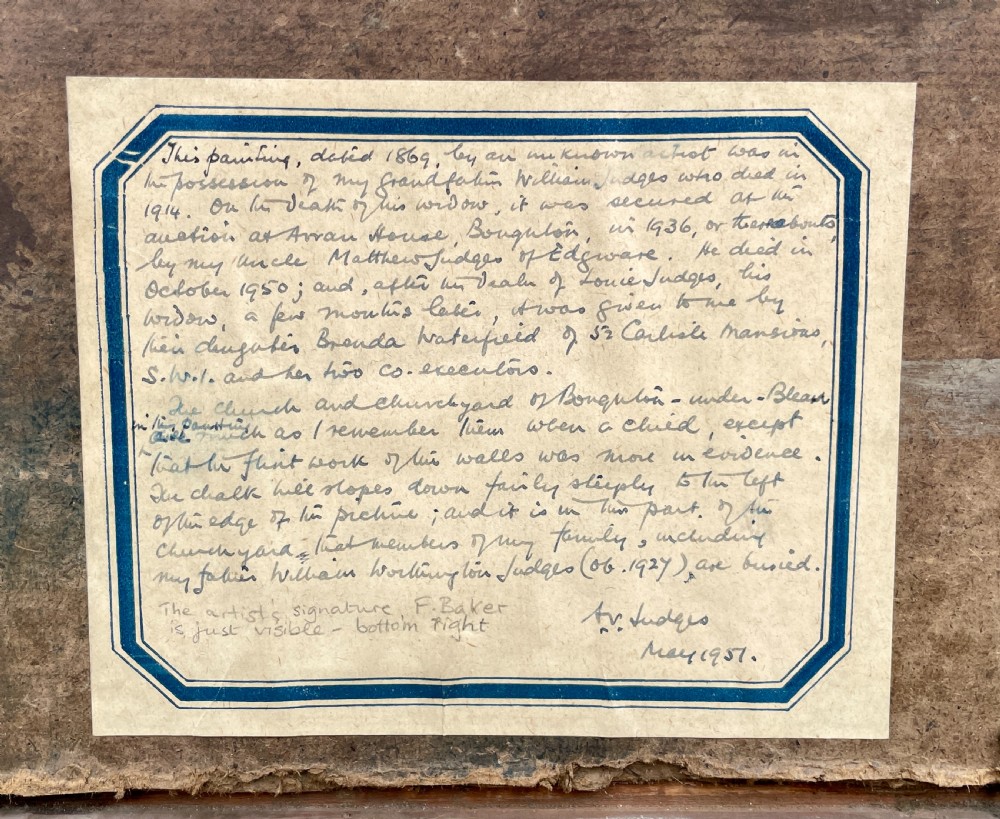 This painting, dated 1869, by an unknown artist was in
the possession of my grandfather William Judges who died in
1914. On the death of his widow, it was secured at the
auction at Arran House, Boughton, in 1936, or thereabouts,
by my uncle Matthew Judges of Edgware. He died in
October 1950; and, after the death of Louie Judges, his
widow, a few months later, it was given to me by
their daughter Brenda Waterfield of 52 Carlisle Mansions,
S.W.1. and her two co-executors.
The church and churchyard of Boughton-under-Blean
in this painting
are much as I remember them when a child, except
that the flint work of the walls was more in evidence.
The chalk hill slopes down fairly steeply to the left
of the edge of the picture; and it is in this part of the
churchyard that members of my family, including
my father William Worthington Judges (ob. 1927), are buried.
The artist's signature, F. Baker
is just visible - bottom right
A.V. Judges
May 1951.